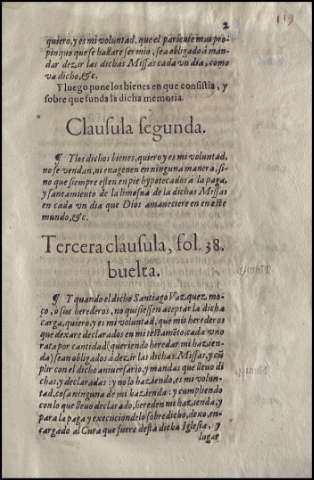 2
119
quiero, y es mi voluntad, que el pariente mas pro-
pinquo que se hallare ser mio, sea obligado à man-
dar dezir las dichas Missas cada vn dia, como
va dicho, &c.
Y luego pone los bienes en que consistia, y
sobre que funda la dicha memoria.
Clausula segunda.
¶ Y los dichos bienes, quiero y es mi voluntad,
no se vendan, ni enagenen en ninguna manera, si-
no que siempre esten en pie hypotecados a la paga,
y saneamiento de la limosna de la dichas Missas
en cada vn dia que Dios amaneciere en en este
mundo, &c.
Tercera clausula, fol. 38.
buelta.
¶ Y quando el dicho Santiago Vazquez mo-
ço, o sus herederos, no quisiessen aceptar la dicha
carga, quiero, y es mi voluntad, que mis herederos
que dexare declarados en mi testamẽto, cada vno
rata por cantidad (queriendo heredar mi hazien-
da) sean obligados à dezir las dichas Missas, y cũ
plir con el dicho aniversario, y mandas que lleuo di
chas, y declaradas: y no lo haziendo, es mi volun-
tad, cosa ninguna de mi hazienda: y cumpliendo
con lo que lleuo declarado, hereden mi hazienda, y
para la paga y execucion de lo sobredicho, dexo en-
cargado al Cura que fuere desta dicha Iglesia, y
lugar